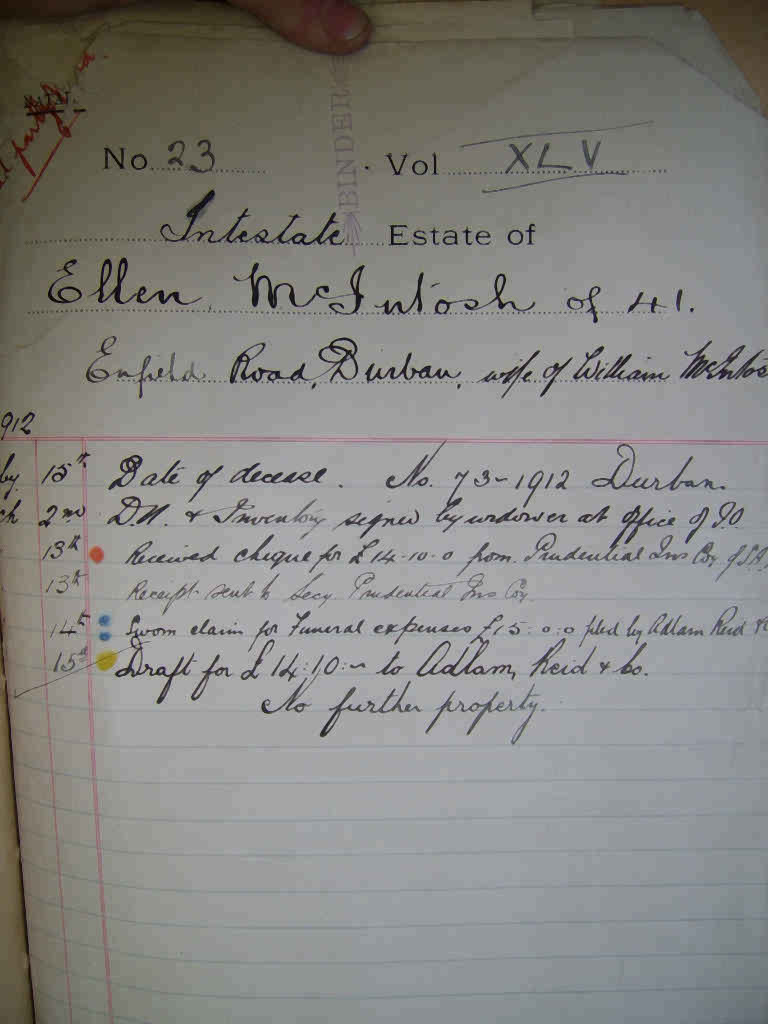 No. 23 . Vol XLV
BINDER
Intestate Estate of
Ellen McIntosh of 41.
Enfield Road, Durban, wife of William McIntos
912
by 15th Date of decease. No. 73-1912 Durban.
ch 2nd D.N. & Inventory signed by widower at office of
13th Received cheque for £14-10-0 from Prudential Ins Coy of S.A.
13th Receipt sent to Secy Prudential Ins Coy.
14th Sworn claim for Funeral expenses £15:0:0 filed by Adlam Reid &
15th Draft for £14:10:- to Adlam, Reid & Co.
No further property.